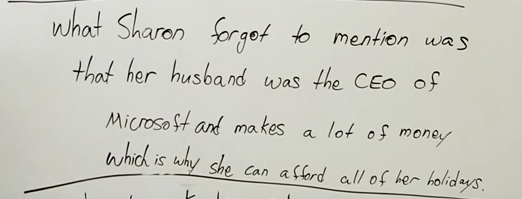 What Sharon forgot to mention was
that her husband was the CEO of
Microsoft and makes a lot of money
which is why she can afford all of her holidays.